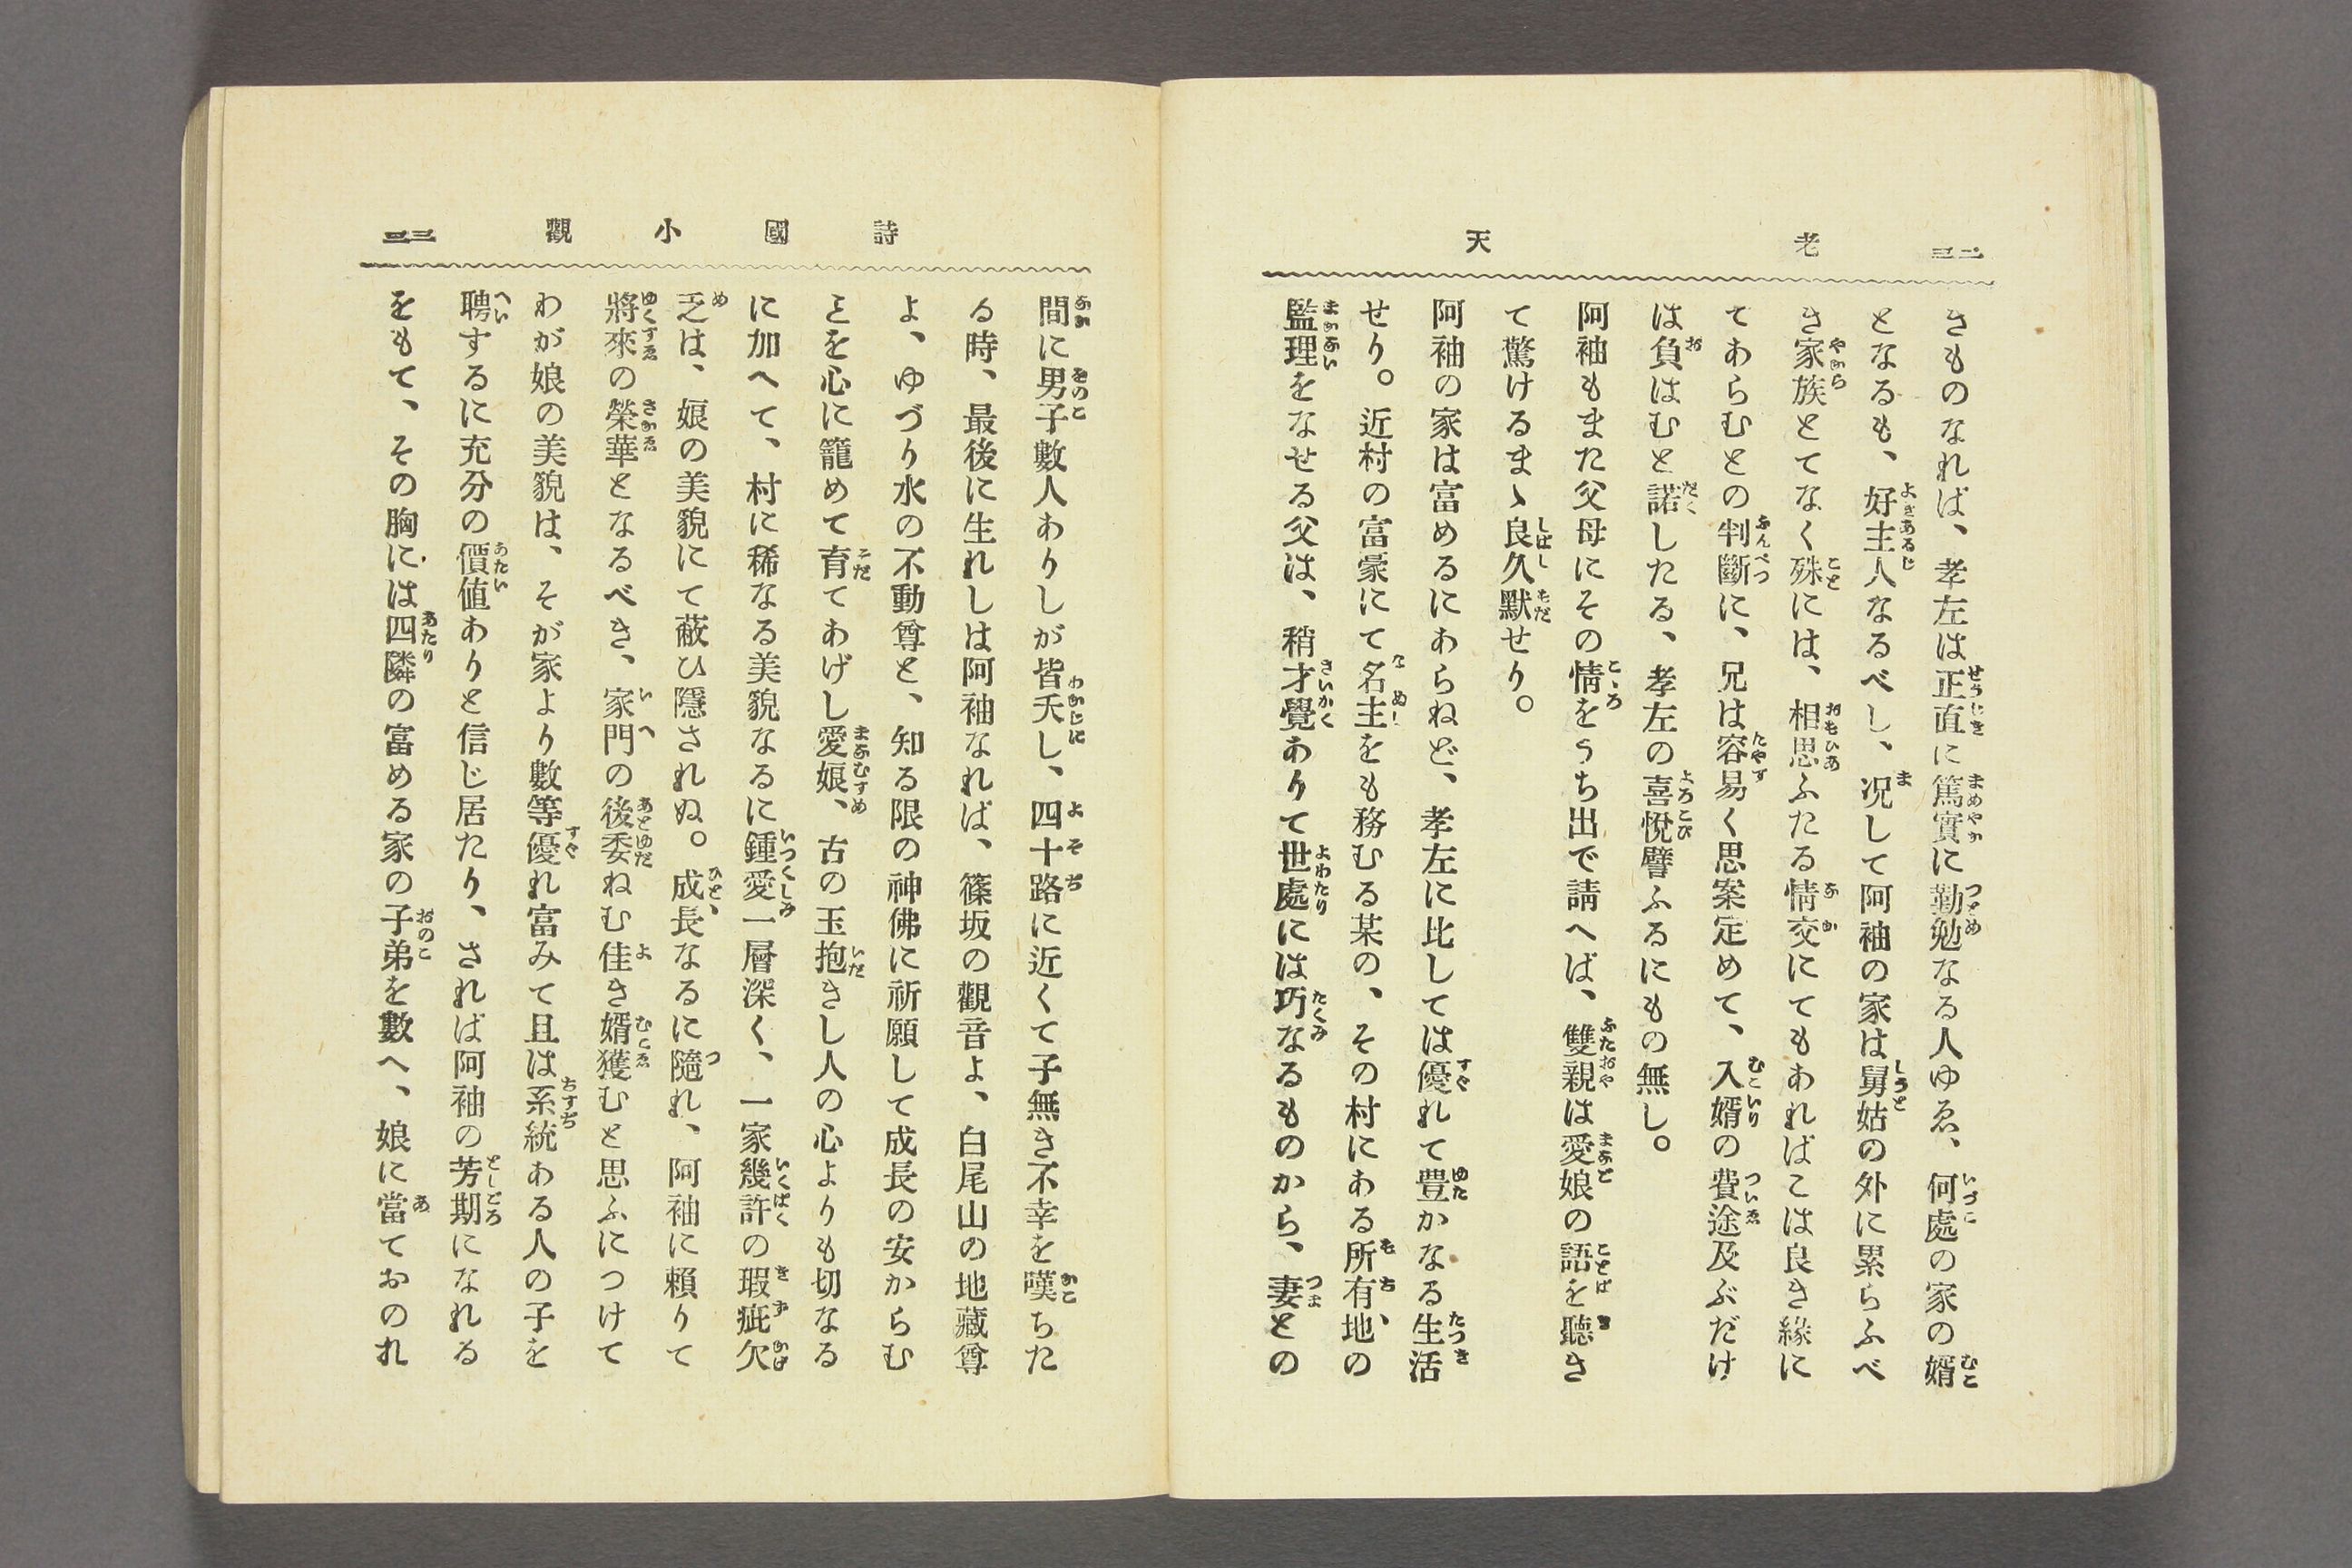 二三 老天
きものなれば、孝左は正直に篤實に勤勉なる人ゆゑ、何處の家の婿
となるも、好主人なるべし、况して阿袖の家は舅姑の外に累らふべ
き家族とてなく殊には、相思ふたる情交にてもあればこは良き緣に
てあらむとの判斷に、兄は容易く思案定めて、入婿の費途及ぶだけ
は負はむと諾したる、孝左の喜悅譬ふるにもの無し。
阿袖もまた父母にその情をうち出で請へば、雙親は愛娘の語を聽き
て驚けるまゝ良久默せり。
阿袖の家は富めるにあらねど、孝左に比しては優れて豊かなる生活
せり。近村の富豪にて名主をも務むる某の、その村にある所有地の
監理をなせる父は、稍才覺ありて世處には巧なるものから、妻との
詩國小觀 三三
間に男子數人ありしが皆夭し、四十路に近くて子無き不幸を嘆ちた
る時、最後に生れしは阿袖なれば、篠坂の觀音よ、白尾山の地藏尊
よ、ゆづり水の不動尊と、知る限の神佛に祈願して成長の安からむ
ことを心に籠めて育てあげし愛娘、古の玉抱きし人の心よりも切なる
に加へて、村に稀なる美貌なるに鍾愛一層深く、一家幾許の瑕疵欠
乏は、娘の美貌にて蔽ひ隱されぬ。成長なるに隨れ、阿袖に賴りて
將來の榮華となるべき、家門の後委ねむ佳き婿獲むと思ふにつけて
わが娘の美貌は、そが家より數等優れ富みて且は系統ある人の子を
聘するに充分の價値ありと信じ居たり、されば阿袖の芳期になれる
をもて、その胸には四隣の富める家の子弟を數へ、娘に當ておのれ